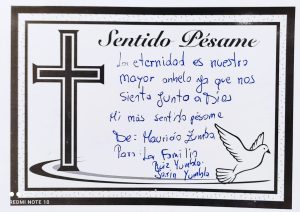 Sentido Pésame
La eternidad es nuestro
mayor anhelo ya que nos
sienta junto a Dios
Mi más sentido pésame
De: Mauricio Zumba
Para: La Familia
Ruiz Yumbla
Yumbla
REDMI NOTE 10